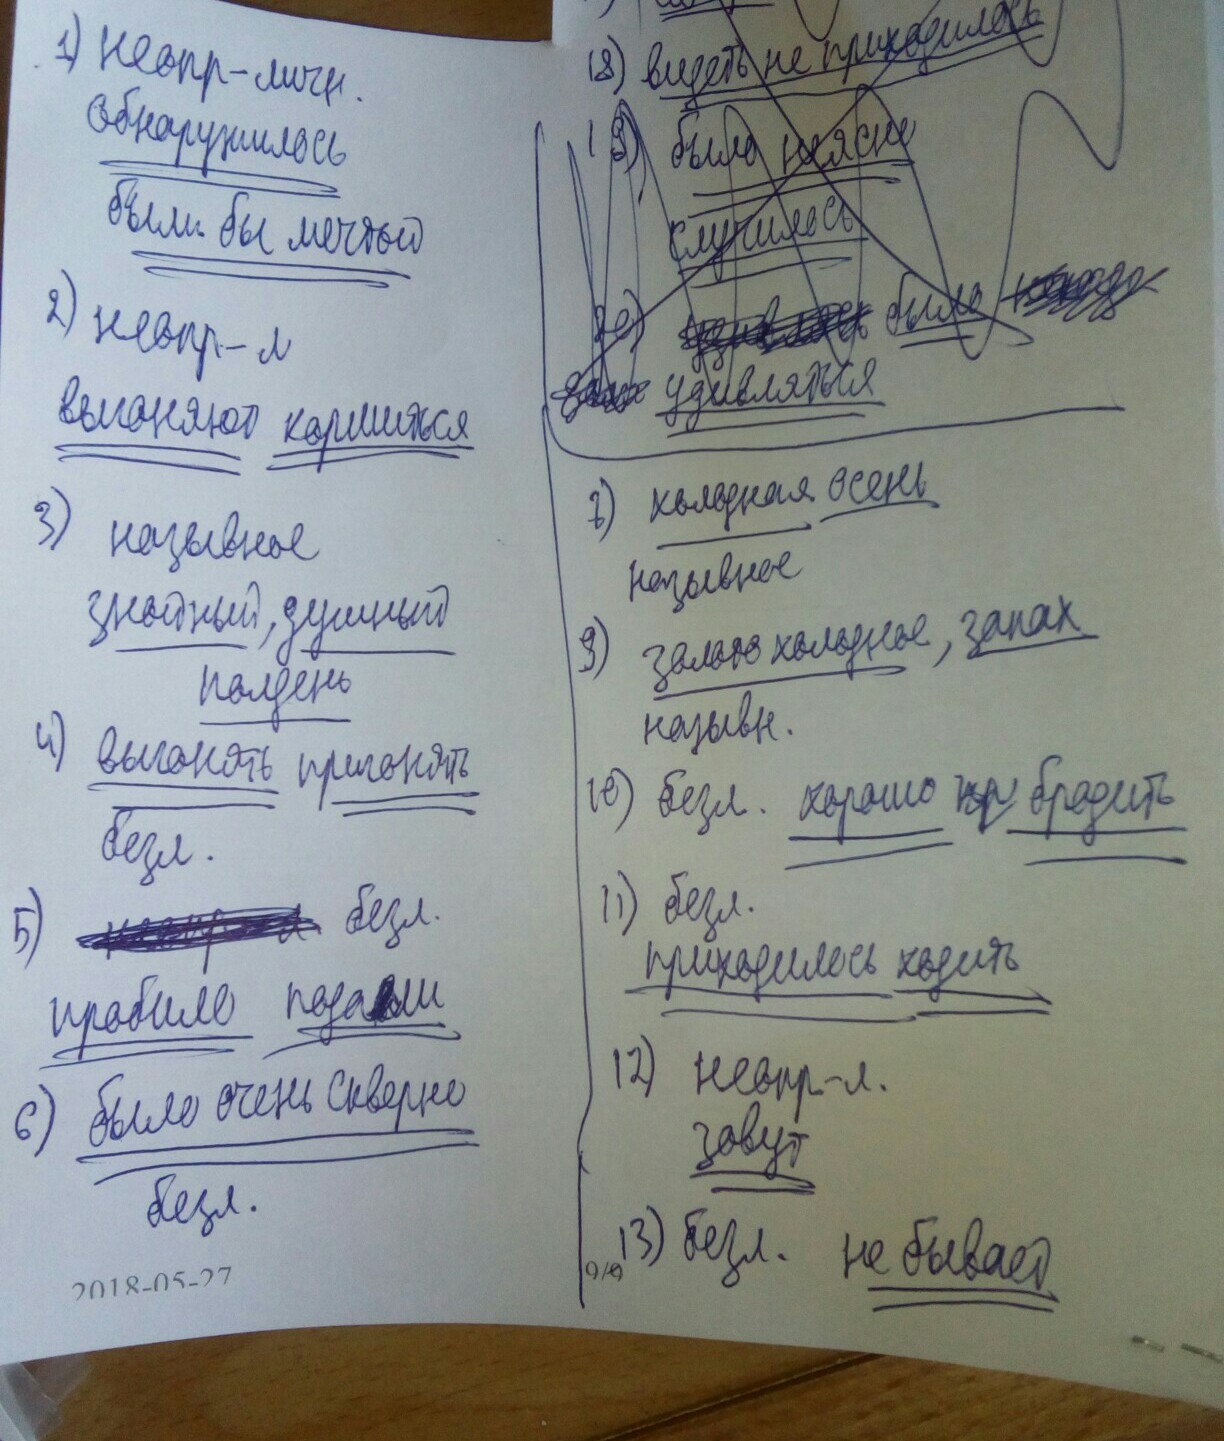 1) неопр-личн.
обнаружилось
были бы мечтой
2) неопр-л
выгоняют кормиться
3) назывное
знойный, душный
полдень
4) выгонять пригонять
безл.
5) безл.
пробило подали
6) было очень скверно
безл.
2018-05-27
18) видеть не приходилось
19) было неясно
случилось
20) было
удивляться
7) холодная осень
назывное
9) золото холодное, запах
назывн.
10) безл. хорошо бродить
11) безл.
приходилось ходить
12) неопр-л.
зовут
13) безл. не бывает
9/9